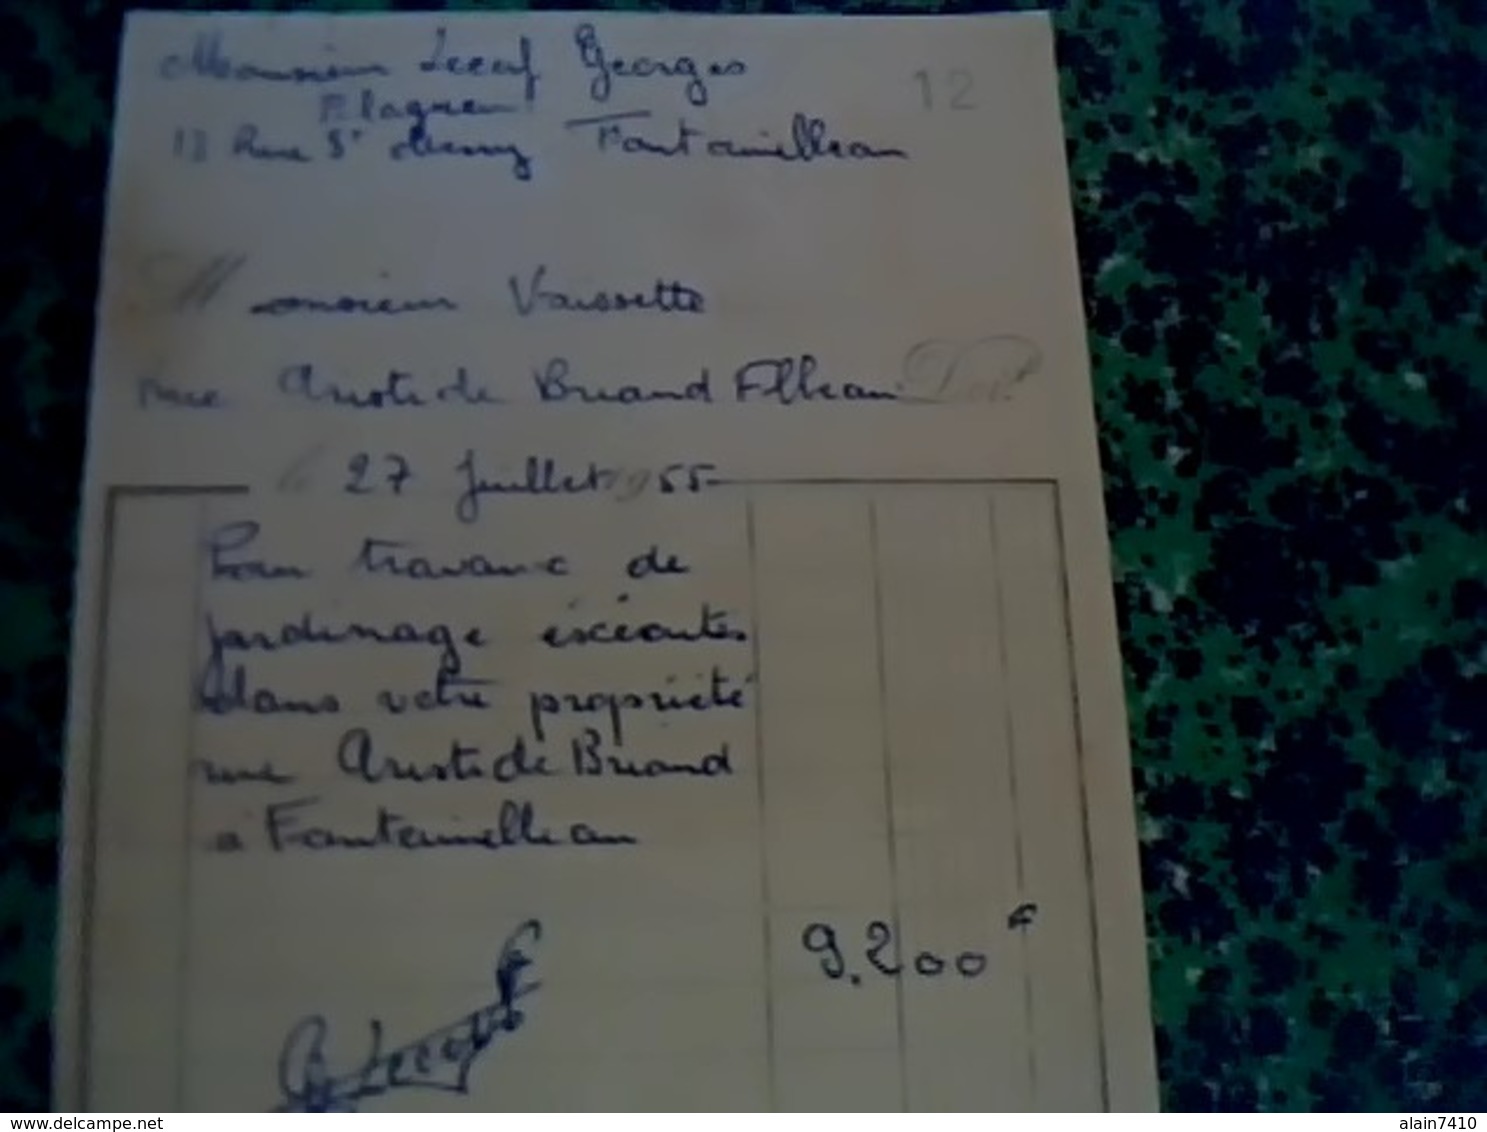 Monsieur Lecoq Georges
12
13 Rue St Merry Fontainebleau
Monsieur Vaissette
rue Aristide Briand Fbleau Doit
le 27 Juillet 1955
Pour travaux de
jardinage éxécutés
dans votre propriété
rue Aristide Briand
a Fontainebleau
9.200 F
G Lecoq
delcampe.net
alain7410